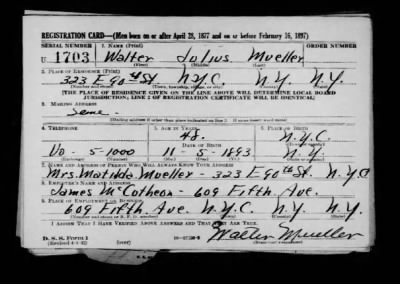 REGISTRATION CARD—(Men born on or after April 28, 1877 and on or before February 16, 1897)
SERIAL NUMBER 1. NAME (Print) ORDER NUMBER
U 1703 Walter Julius Mueller
(First) (Middle) (Last)
2. PLACE OF RESIDENCE (Print)
323 E 90th St. N.Y.C. N.Y. N.Y.
(Number and street) (Town, township, village, or city) (County) (State)
[THE PLACE OF RESIDENCE GIVEN ON THE LINE ABOVE WILL DETERMINE LOCAL BOARD
JURISDICTION; LINE 2 OF REGISTRATION CERTIFICATE WILL BE IDENTICAL]
3. MAILING ADDRESS
Same
[Mailing address if other than place indicated on line 2. If same insert word same]
4. TELEPHONE 5. AGE IN YEARS 6. PLACE OF BIRTH
48. N.Y.C.
DATE OF BIRTH (Town or county)
5-1000 11-5-1893 N.Y.
(Exchange) (Number) (Mo.) (Day) (Yr.) (State or country)
7. NAME AND ADDRESS OF PERSON WHO WILL ALWAYS KNOW YOUR ADDRESS
Mrs. Matilda Mueller - 323 E 90th St. N.Y.C
8. EMPLOYER'S NAME AND ADDRESS
James McCutcheon - 609 Fifth Ave.
9. PLACE OF EMPLOYMENT OR BUSINESS
609 Fifth Ave N.Y.C. N.Y. N.Y.
(Number and street or R. F. D. number) (Town) (County) (State)
I AFFIRM THAT I HAVE VERIFIED ABOVE ANSWERS AND THAT THEY ARE TRUE.
D. S. S. Form 1
(Revised 4-1-42) (over) Walter Mueller